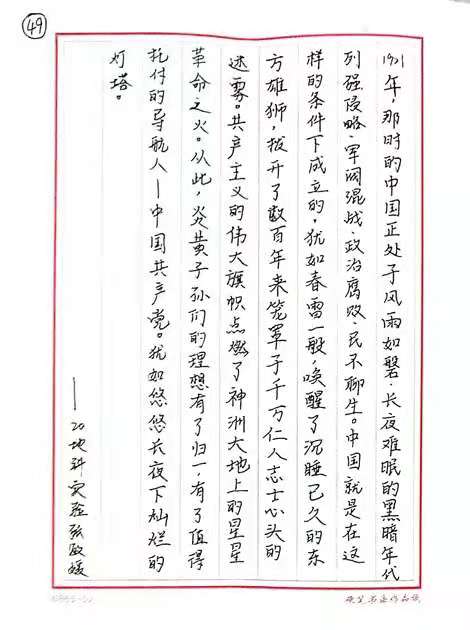 49
1921年，那时的中国正处于风雨如磐、长夜难眠的黑暗年代
列强侵略、军阀混战、政治腐败、民不聊生。中国就是在这
样的条件下成立的，犹如春雷一般，唤醒了沉睡已久的东
方雄狮，拨开了数百年来笼罩于千万仁人志士心头的
迷雾。共产主义的伟大旗帜点燃了神洲大地上的星星
革命之火。从此，炎黄子孙们的理想有了归一，有了值得
托付的导航人—中国共产党。犹如悠悠长夜下灿烂的
灯塔。
——20地科实验张
硬笔书法作品纸